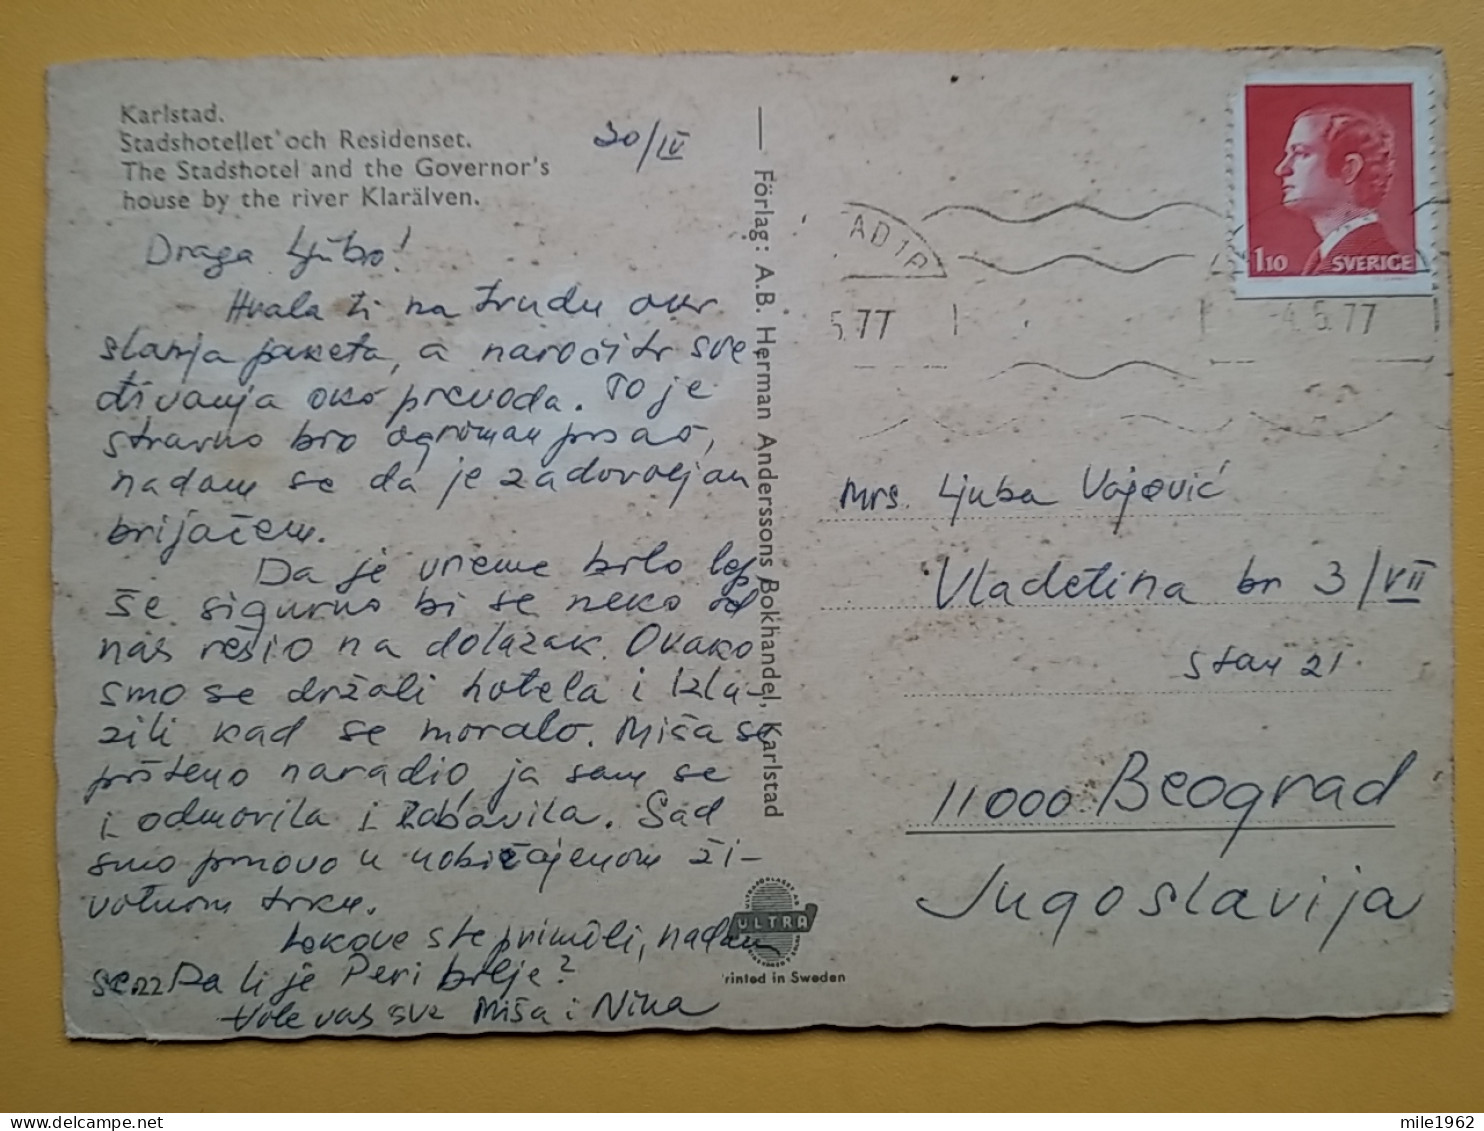 Karlstad.
Stadshotellet och Residenset.
The Stadshotel and the Governor's
house by the river Klarälven.
30/IV
Draga Ljubo!
Hvala ti na trudu oko
slanja paketa, a naročito sre
đivanja oko prevoda. To je
stvarno bio ogroman posao,
nadam se da je zadovoljan
brijačem.
Da je vreme bilo lep
še sigurno bi se neko od
nas rešio na dolazak. Ovako
smo se držali hotela i izla-
zili kad se moralo. Miša se
pošteno naradio, ja sam se
i odmorila i zabavila. Sad
smo ponovo u uobičajenom ži-
votnom toku.
Lekove ste primili, nadam
se. Da li je Peri bolje?
Vole vas sve Miša i Nina
Förlag: A.B. Herman Anderssons Bokhandel, Karlstad
ULTRA
Printed in Sweden
1 10 SVERIGE
5.77
-4.5.77
Mrs. Ljuba Vajović
Vladetina br 3/VII
stan 21.
11000 Beograd
Jugoslavija
mile1962